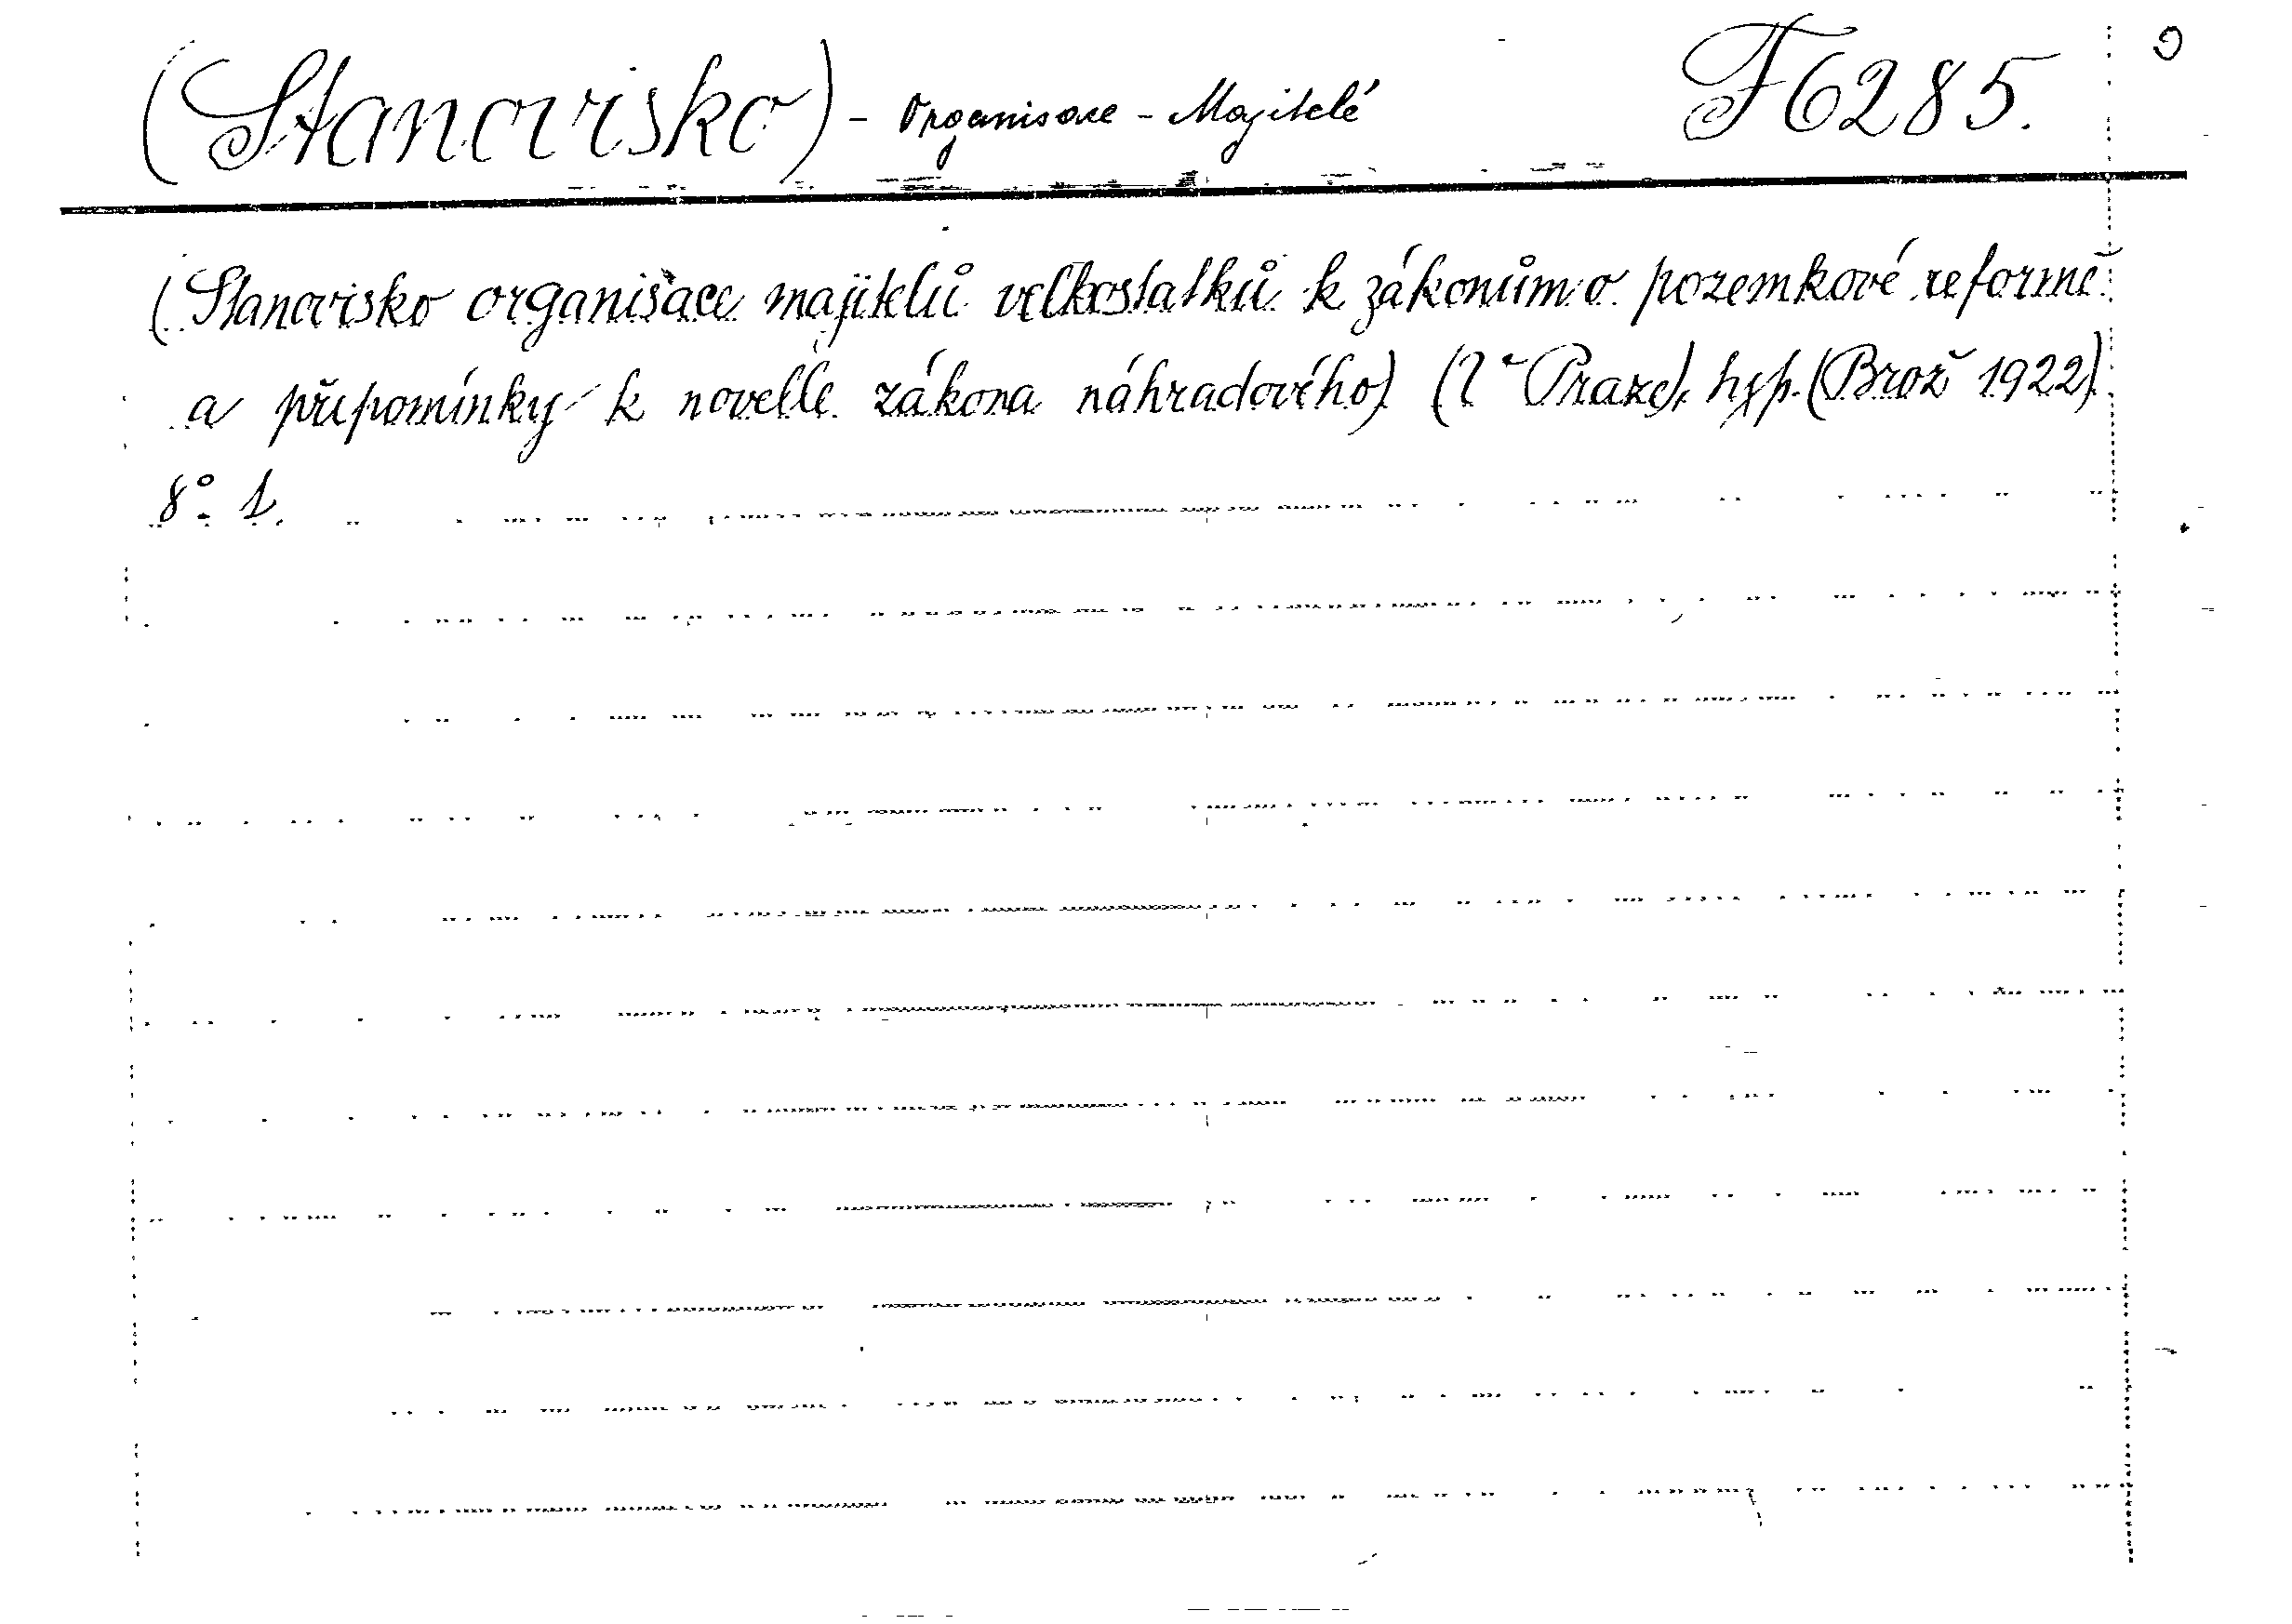 (Stanovisko) - Organisace - Majitelé F 6285.
(Stanovisko organisace majitelů velkostatků k zákonům o pozemkové reformě
a připomínky k novelle zákona náhradového) (V Praze), hyp. (Brož 1922).
8° 1.